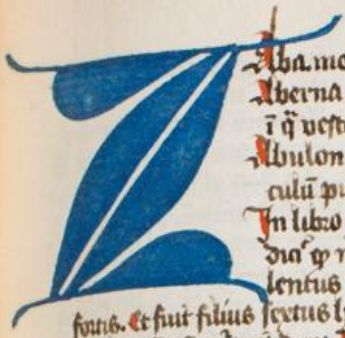 Z
Aba. mo
Aberna
ī q̄ vesti
Abulon
culū pu
In libro
lentus
fortis. Et fuit filius sextus l